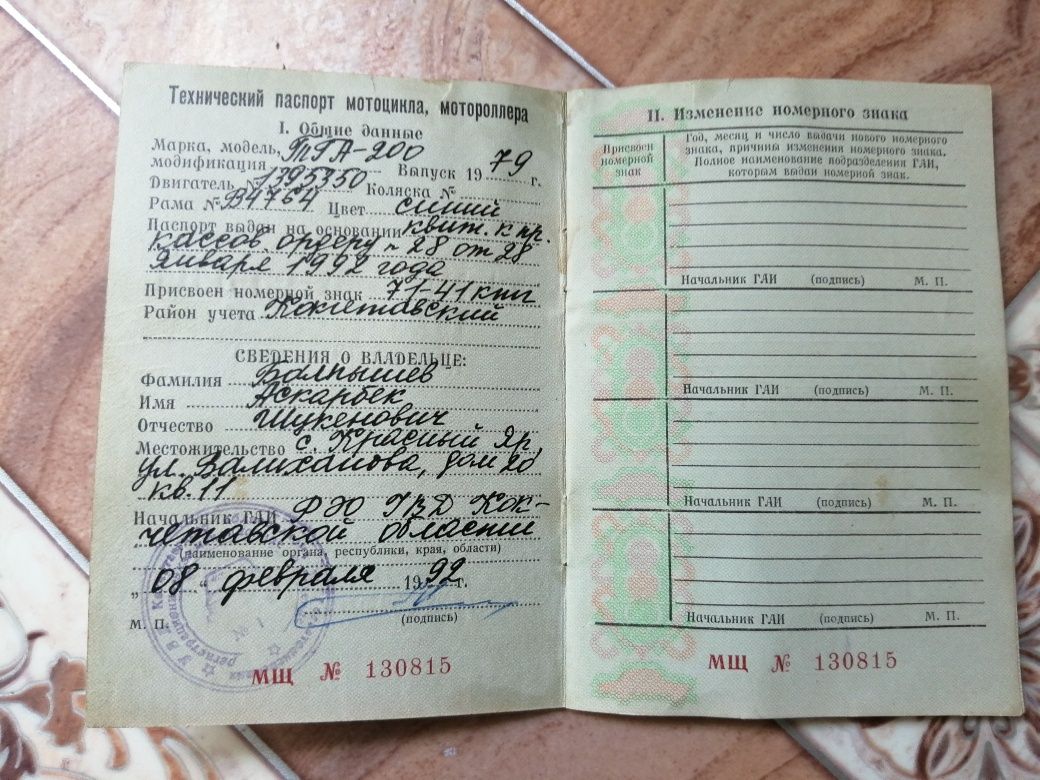 Технический паспорт мотоцикла, мотороллера
I. Общие данные
Марка, модель, ТГА-200
модификация Выпуск 1979 г.
Двигатель 1795750 Коляска №
Рама № В4764 Цвет синий
Паспорт выдан на основании квит. к пр.
кассов. ордеру № 28 от 28
января 1992 года
Присвоен номерной знак 71-41
Район учета Кокчетавский
СВЕДЕНИЯ О ВЛАДЕЛЬЦЕ:
Фамилия Балпышев
Имя Аскарбек
Отчество Шукенович
Местожительство с. Красный Яр,
ул. Валиханова, дом 20
кв. 11
Начальник ГАИ УВД Кок-
четавской области
(наименование органа, республики, края, области)
„08“ февраля 1992 г.
М. П. (подпись)
№ 1
МЩ № 130815
II. Изменение номерного знака
Присвоен номерной знак
Год, месяц и число выдачи нового номерного
знака, причины изменения номерного знака.
Полное наименование подразделения ГАИ,
которым выдан номерной знак.
Начальник ГАИ (подпись) М. П.
Начальник ГАИ (подпись) М. П.
Начальник ГАИ (подпись) М. П.
Начальник ГАИ (подпись) М. П.
МЩ № 130815